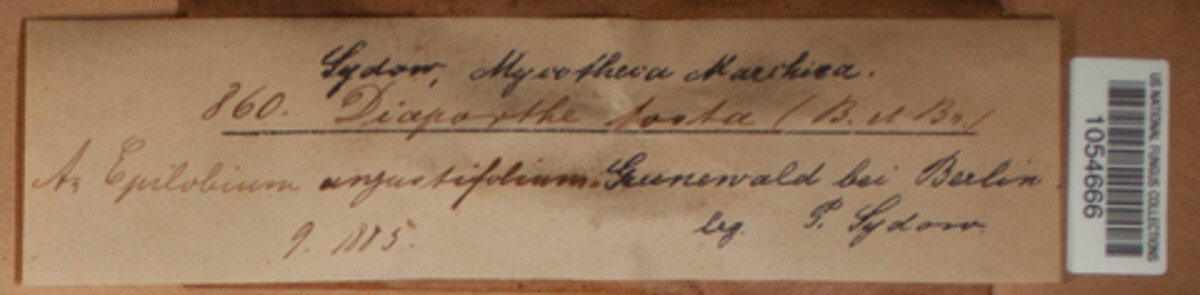 Sydow, Mycotheca Marchica.
860. Diaporthe tosta (B. et Br.)
An Epilobium angustifolium. Grunewald bei Berlin.
9. 1885. leg. P. Sydow.
US NATIONAL FUNGUS COLLECTIONS
1054666